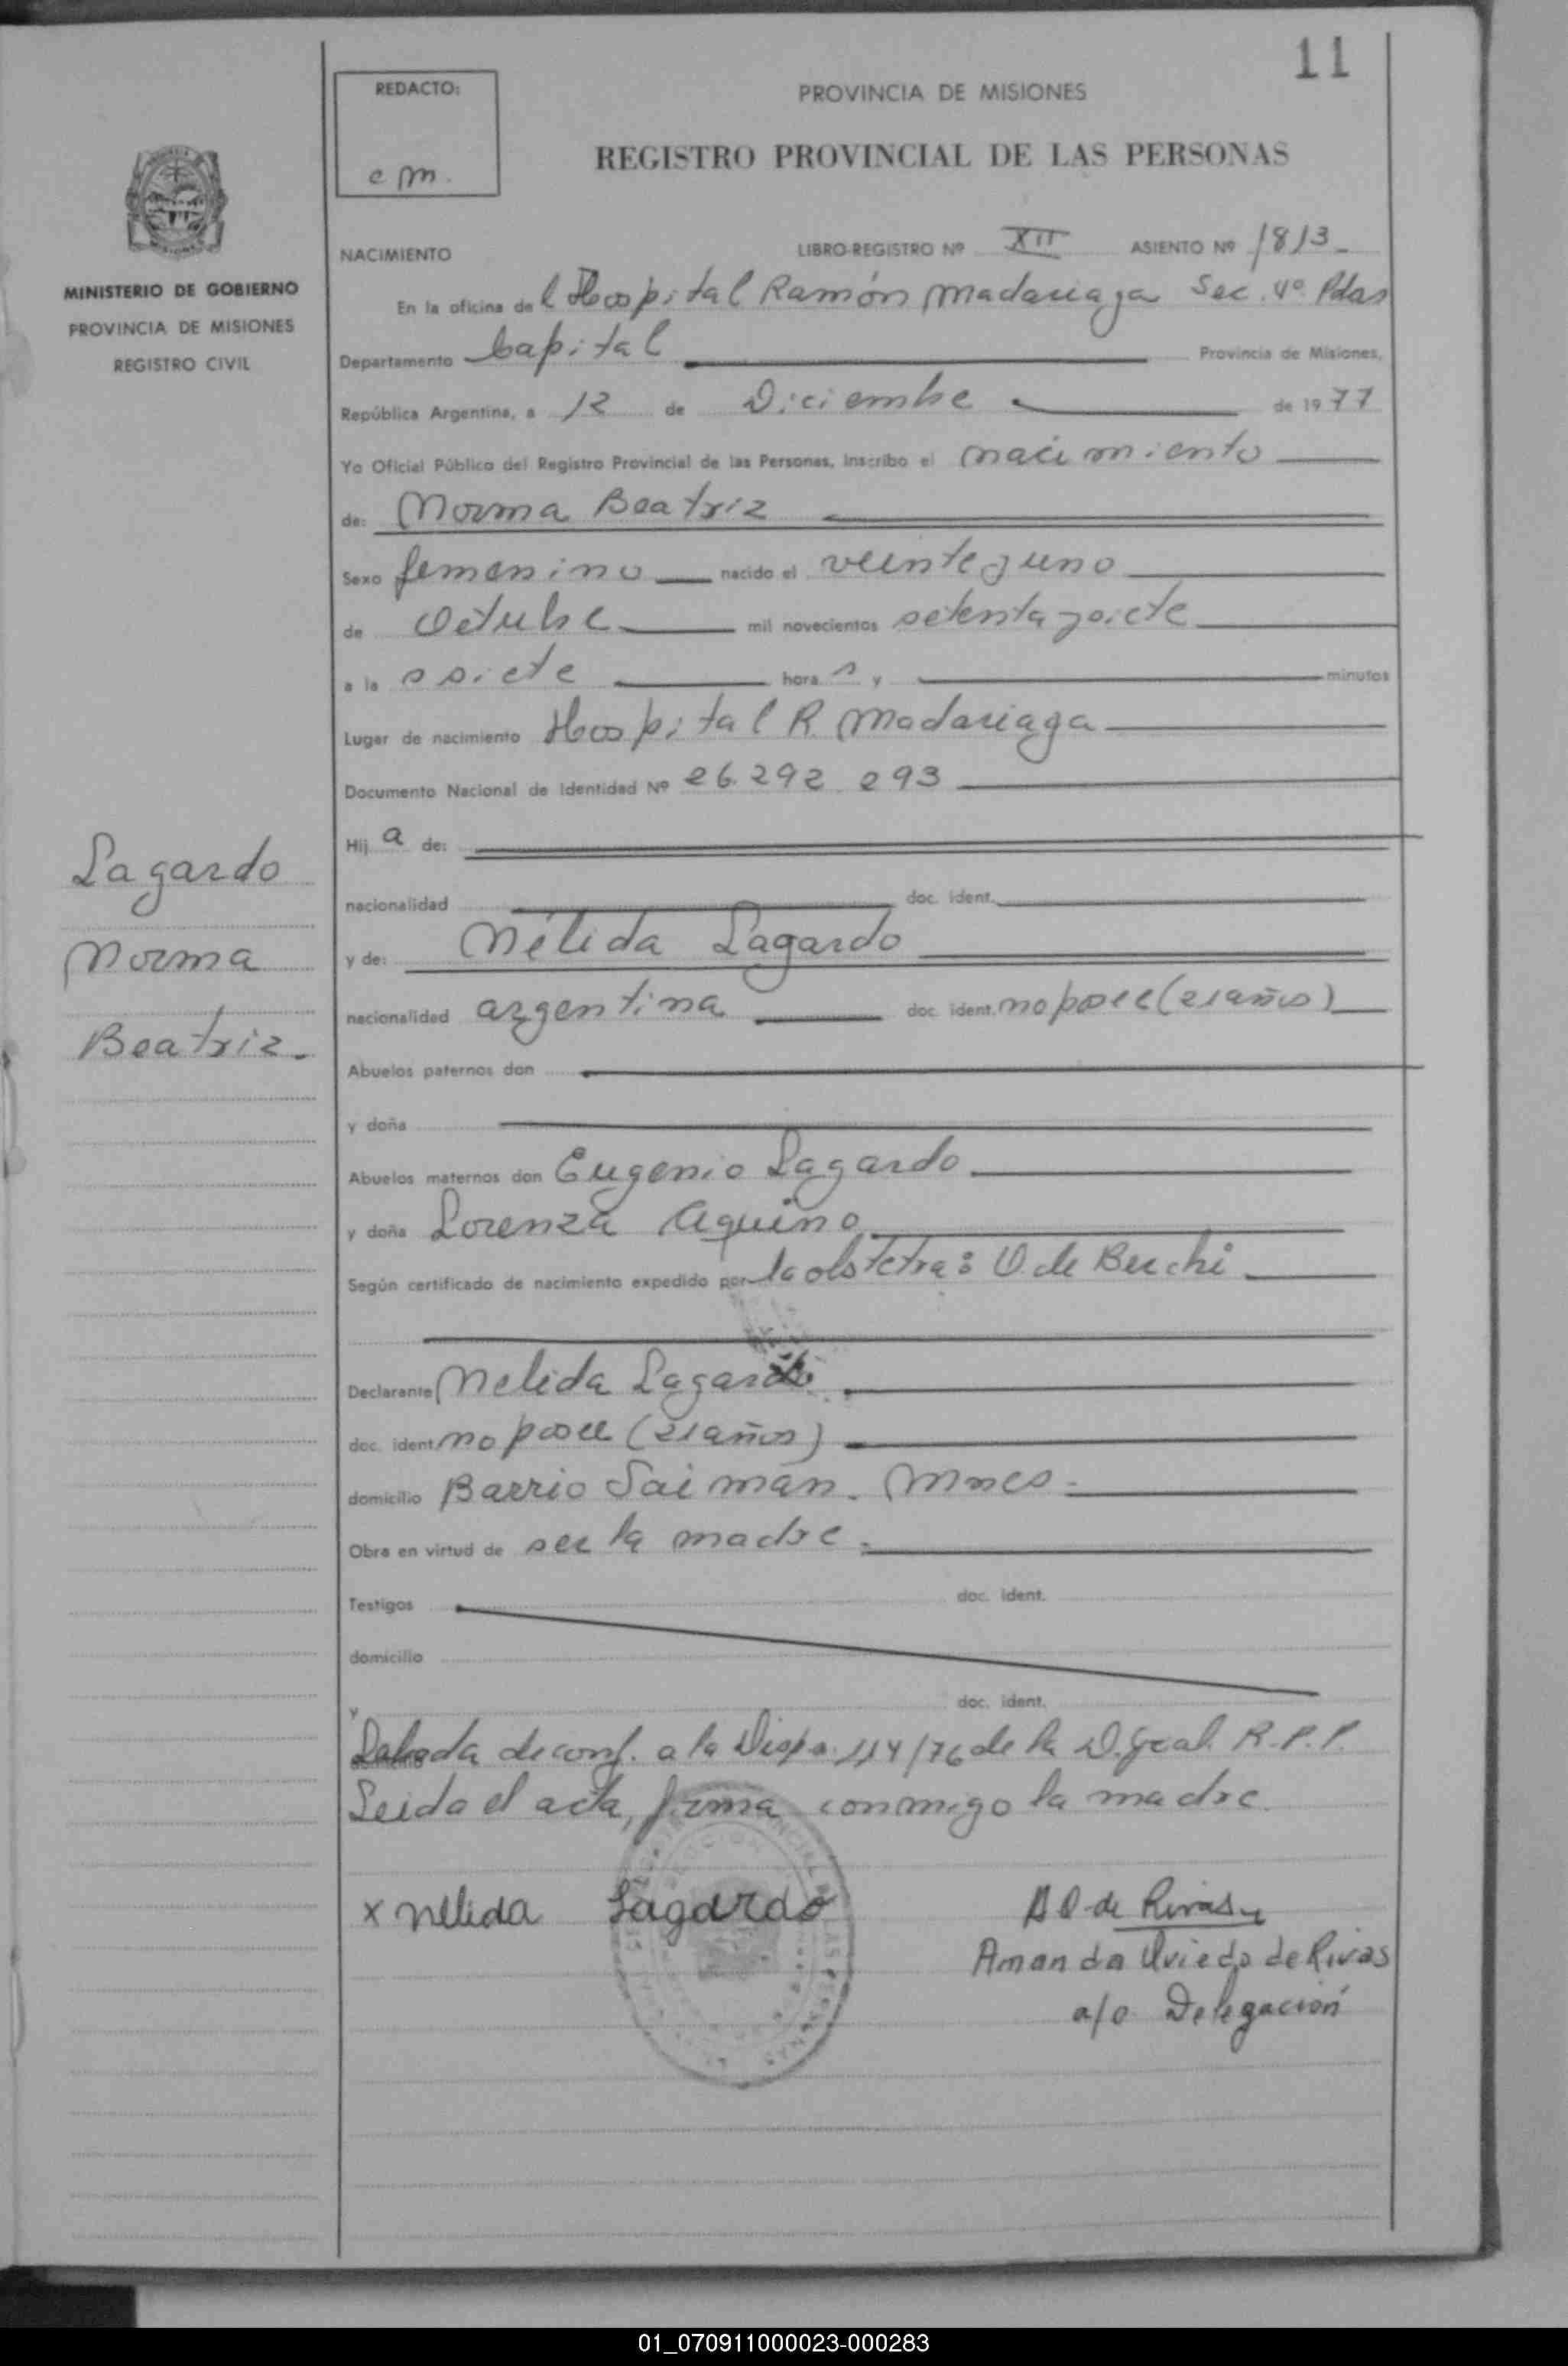 11
REDACTO:
e m.
PROVINCIA DE MISIONES
REGISTRO PROVINCIAL DE LAS PERSONAS
MINISTERIO DE GOBIERNO
PROVINCIA DE MISIONES
REGISTRO CIVIL
NACIMIENTO LIBRO-REGISTRO Nº XII ASIENTO Nº 1813
En la oficina del Hospital Ramón Madariaga Sec. 4º Pdas
Departamento Capital Provincia de Misiones,
República Argentina, a 12 de Diciembre de 1977
Yo Oficial Público del Registro Provincial de las Personas, inscribo el nacimiento
de: Norma Beatriz
Sexo femenino nacido el veinteyuno
de Octubre mil novecientos setenta y siete
a las siete horas y minutos
Lugar de nacimiento Hospital R. Madariaga
Documento Nacional de Identidad Nº 26.292.293
Hija de:
nacionalidad doc. ident.
y de: Nélida Lagardo
nacionalidad argentina doc. ident. no posee (21 años)
Abuelos paternos don
y doña
Abuelos maternos don Eugenio Lagardo
y doña Lorenza Aquino
Según certificado de nacimiento expedido por la obstetra: O. de
Declarante Nelida Lagardo
doc. ident. no posee (21 años)
domicilio Barrio Saiman. Mnes.
Obra en virtud de ser la madre.
Testigos doc. ident.
domicilio
y doc. ident.
domicilio
Labrada de conf. a la Disp. 114/76 de la D. Gral. R.P.P.
Leida el acta, firma conmigo la madre.
x Nélida Lagardo
A O. de Rivas
Amanda Oviedo de Rivas
a/o Delegación
Lagardo
Norma
Beatriz.
01_070911000023-000283